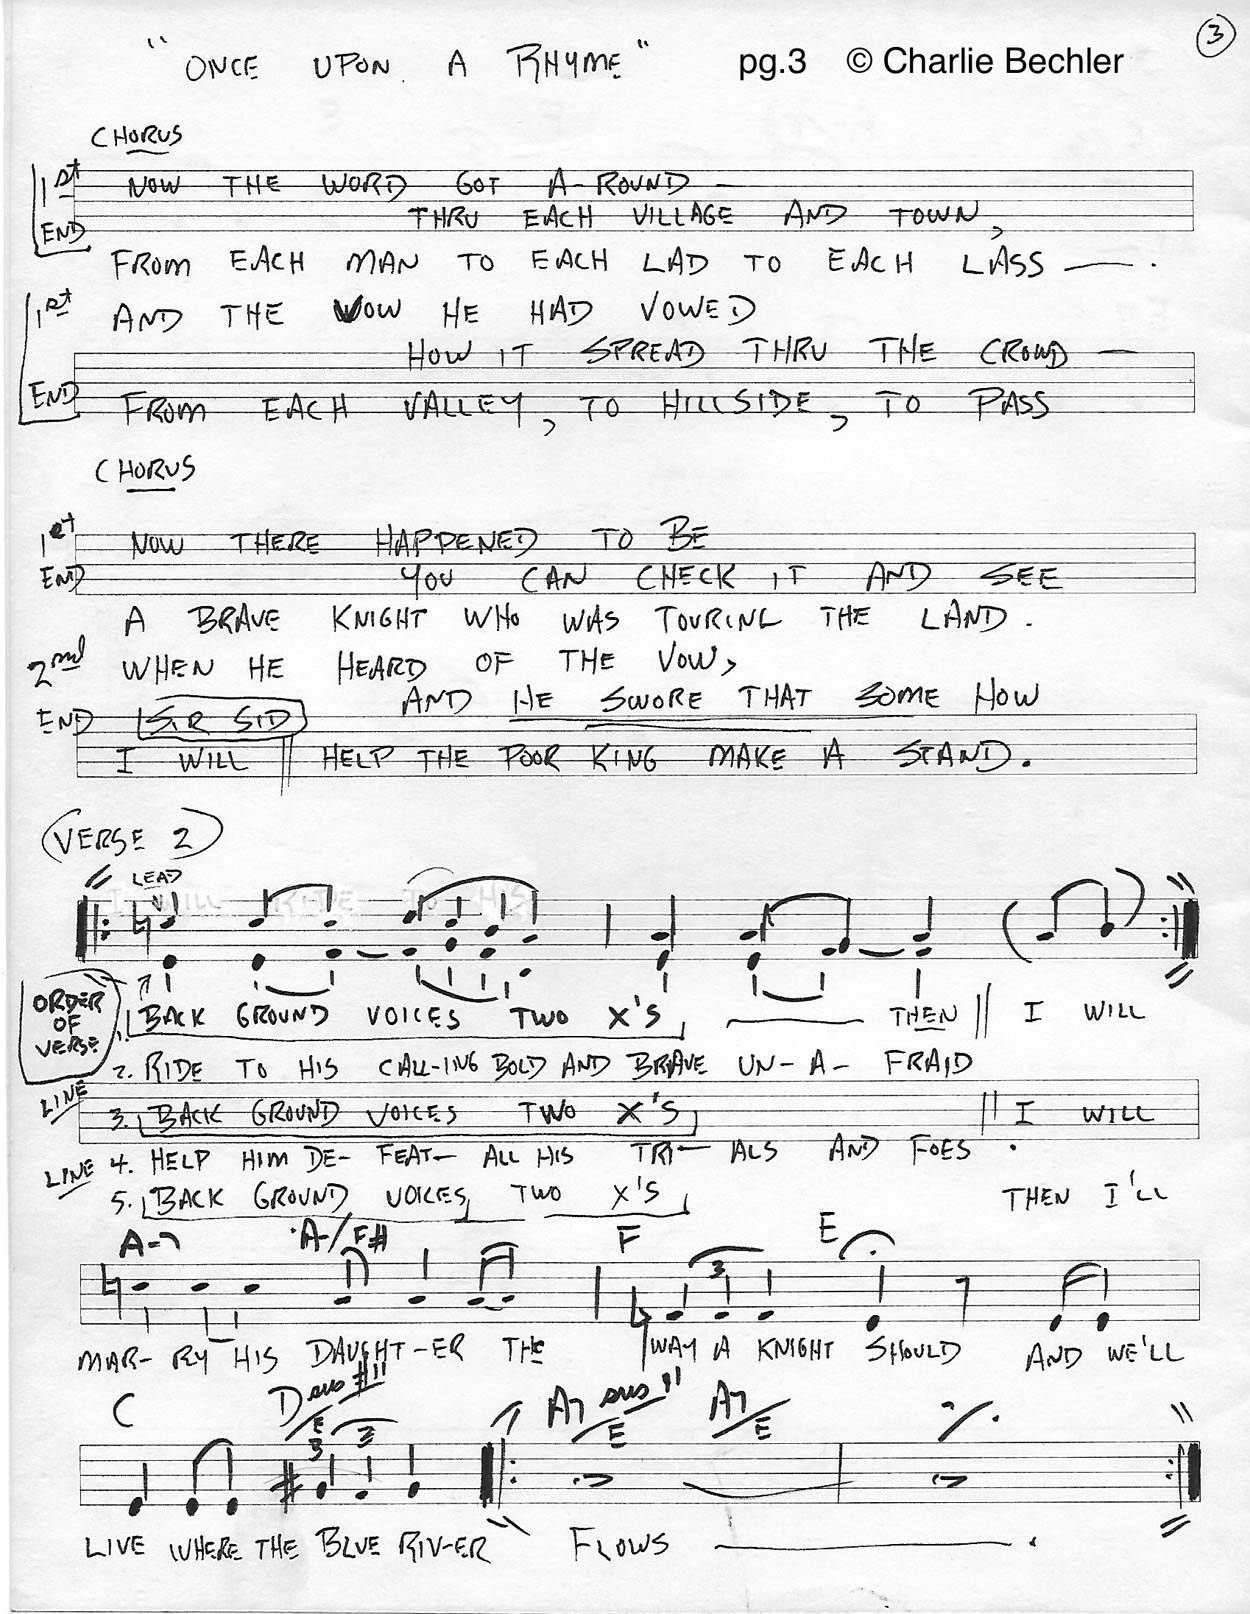 3
"ONCE UPON A RHYME" pg.3 © Charlie Bechler
CHORUS
1st NOW THE WORD GOT A-ROUND —
END THRU EACH VILLAGE AND TOWN,
FROM EACH MAN TO EACH LAD TO EACH LASS —.
1st AND THE VOW HE HAD VOWED
HOW IT SPREAD THRU THE CROWD —
END FROM EACH VALLEY, TO HILLSIDE, TO PASS
CHORUS
1st NOW THERE HAPPENED TO BE
END YOU CAN CHECK IT AND SEE
A BRAVE KNIGHT WHO WAS TOURING THE LAND.
2nd WHEN HE HEARD OF THE VOW,
AND HE SWORE THAT SOME HOW
END SIR SID
I WILL HELP THE POOR KING MAKE A STAND.
VERSE 2
LEAD
I WILL RIDE TO HIS
ORDER OF VERSE
1. BACK GROUND VOICES TWO X'S — THEN I WILL
2. RIDE TO HIS CALL-ING BOLD AND BRAVE UN-A-FRAID
LINE 3. BACK GROUND VOICES TWO X'S I WILL
LINE 4. HELP HIM DE-FEAT- ALL HIS TRI-ALS AND FOES.
5. BACK GROUND VOICES TWO X'S THEN I'LL
A-7 A-/F# F E
3
MAR-RY HIS DAUGHT-ER THE WAY A KNIGHT SHOULD AND WE'LL
C D sus #11/E A7 sus 11/E A7/E
3 3
LIVE WHERE THE BLUE RIV-ER FLOWS —.